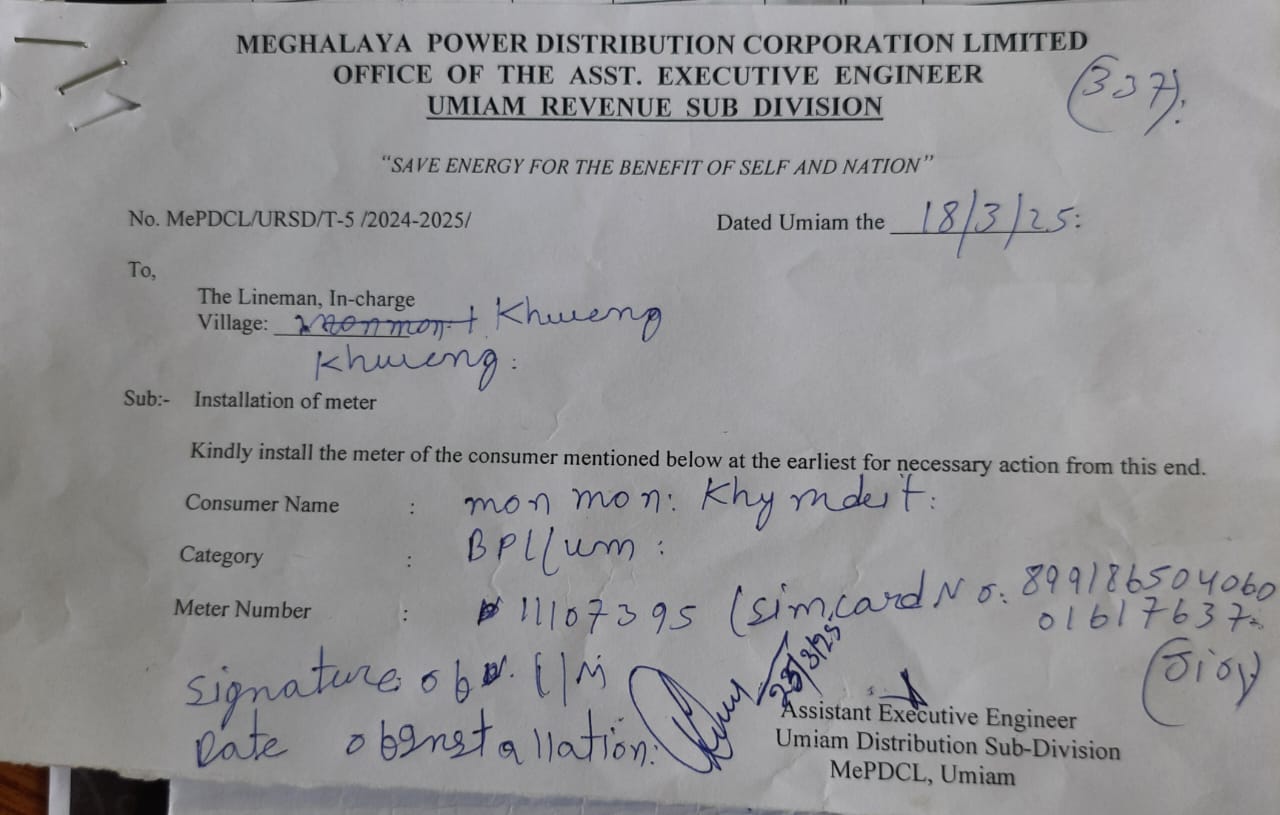 MEGHALAYA POWER DISTRIBUTION CORPORATION LIMITED
OFFICE OF THE ASST. EXECUTIVE ENGINEER
(337).
UMIAM REVENUE SUB DIVISION
"SAVE ENERGY FOR THE BENEFIT OF SELF AND NATION"
No. MePDCL/URSD/T-5 /2024-2025/ Dated Umiam the 18/3/25:
To,
The Lineman, In-charge
Village: Khweng
Khweng:
Sub:- Installation of meter
Kindly install the meter of the consumer mentioned below at the earliest for necessary action from this end.
Consumer Name : mon mon: Khymdeit:
Category : BPL/um:
Meter Number : 11107395 (Sim card No: 899186504060
01617637
Signature of L/M 28/3/25
Date of Installation:
Assistant Executive Engineer
Umiam Distribution Sub-Division
MePDCL, Umiam